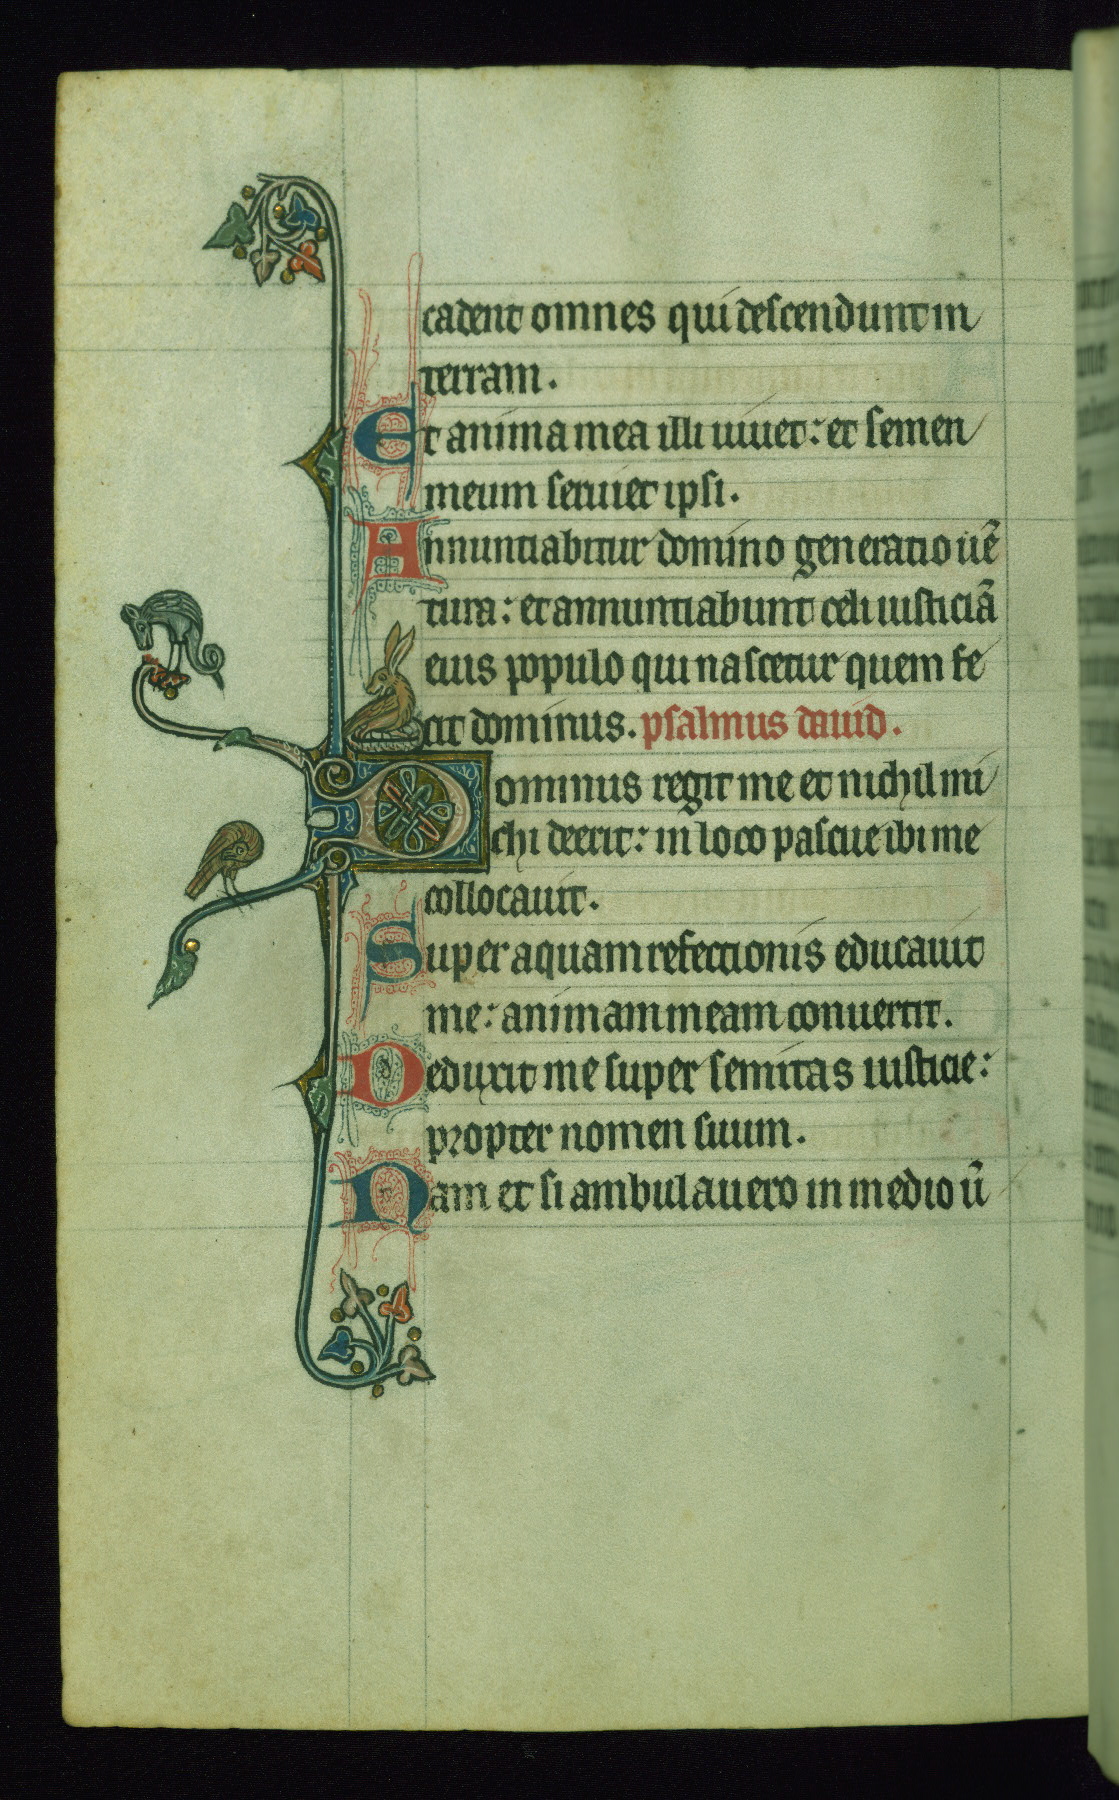 cadent omnes qui descendunt in
terram.
Et anima mea illi uiuet: et semen
meum seruiet ipsi.
Annuntiabitur domino generatio uē
tura: et annuntiabunt celi iusticiā
eius populo qui nascetur quem fe
cit dominus. psalmus dauid.
Dominus regit me et nichil mi
chi deerit: in loco pascue ibi me
collocauit.
Super aquam refectionis educauit
me: animam meam conuertit.
Deduxit me super semitas iusticie:
propter nomen suum.
Nam et si ambulauero in medio ū